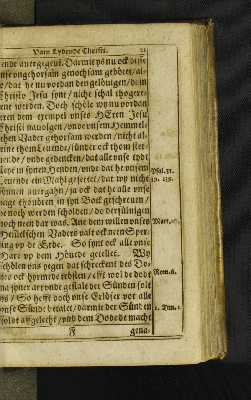 Vam Lydende Christi. 81
ende auergegeuē. Darmit ys nu ock disse
vnse ungehorsam genochsam gebötet/al-
so/dat he nu vordan den gelöuigen/de in
Christo Jesu synt/ nicht schal thogere-
kent werden. Doch schöle wy nu vordan
eren dem exempel vnses HEren Jesu
Christi nauolgen/vnde vnsem Hemmels-
schen Vader gehorsam werden/nicht al-
leine thom Leuende/sünder ock thom ster-
uende/ vnde gedencken/dat alle vnse tydt
stehe in synen Henden/vnde dat he vnsem
Leuende ein Mahl gesettet/dat wy nicht
können auergahn/ja ock dat he alle vnse
dage thouorn in syn Boek geschreuen/
de noch werden scholden/do dersüluigen
noch nen dar was. Ane den willen vnses
Hemelschen Vaders valt ock nen Sper-
ling vp de Erde. So synt ock alle vnse
Hare vp dem Höuede getellet. Wy
schölen vns yegen dat schreckent des Do-
des ock hyrmede trösten/ efft wol de dodt
na syner art vnde gestalt der Sünden solt
ys/ So hefft doch vnse Erlöser vor alle
vnse Sünde betalet/darmit der Sünden
soldt affgelecht/ vnd dem Dode de macht
F gena-
Psal. 31.
39. 139.
Matt. 10.
Rom. 6.
1. Tim. 2.